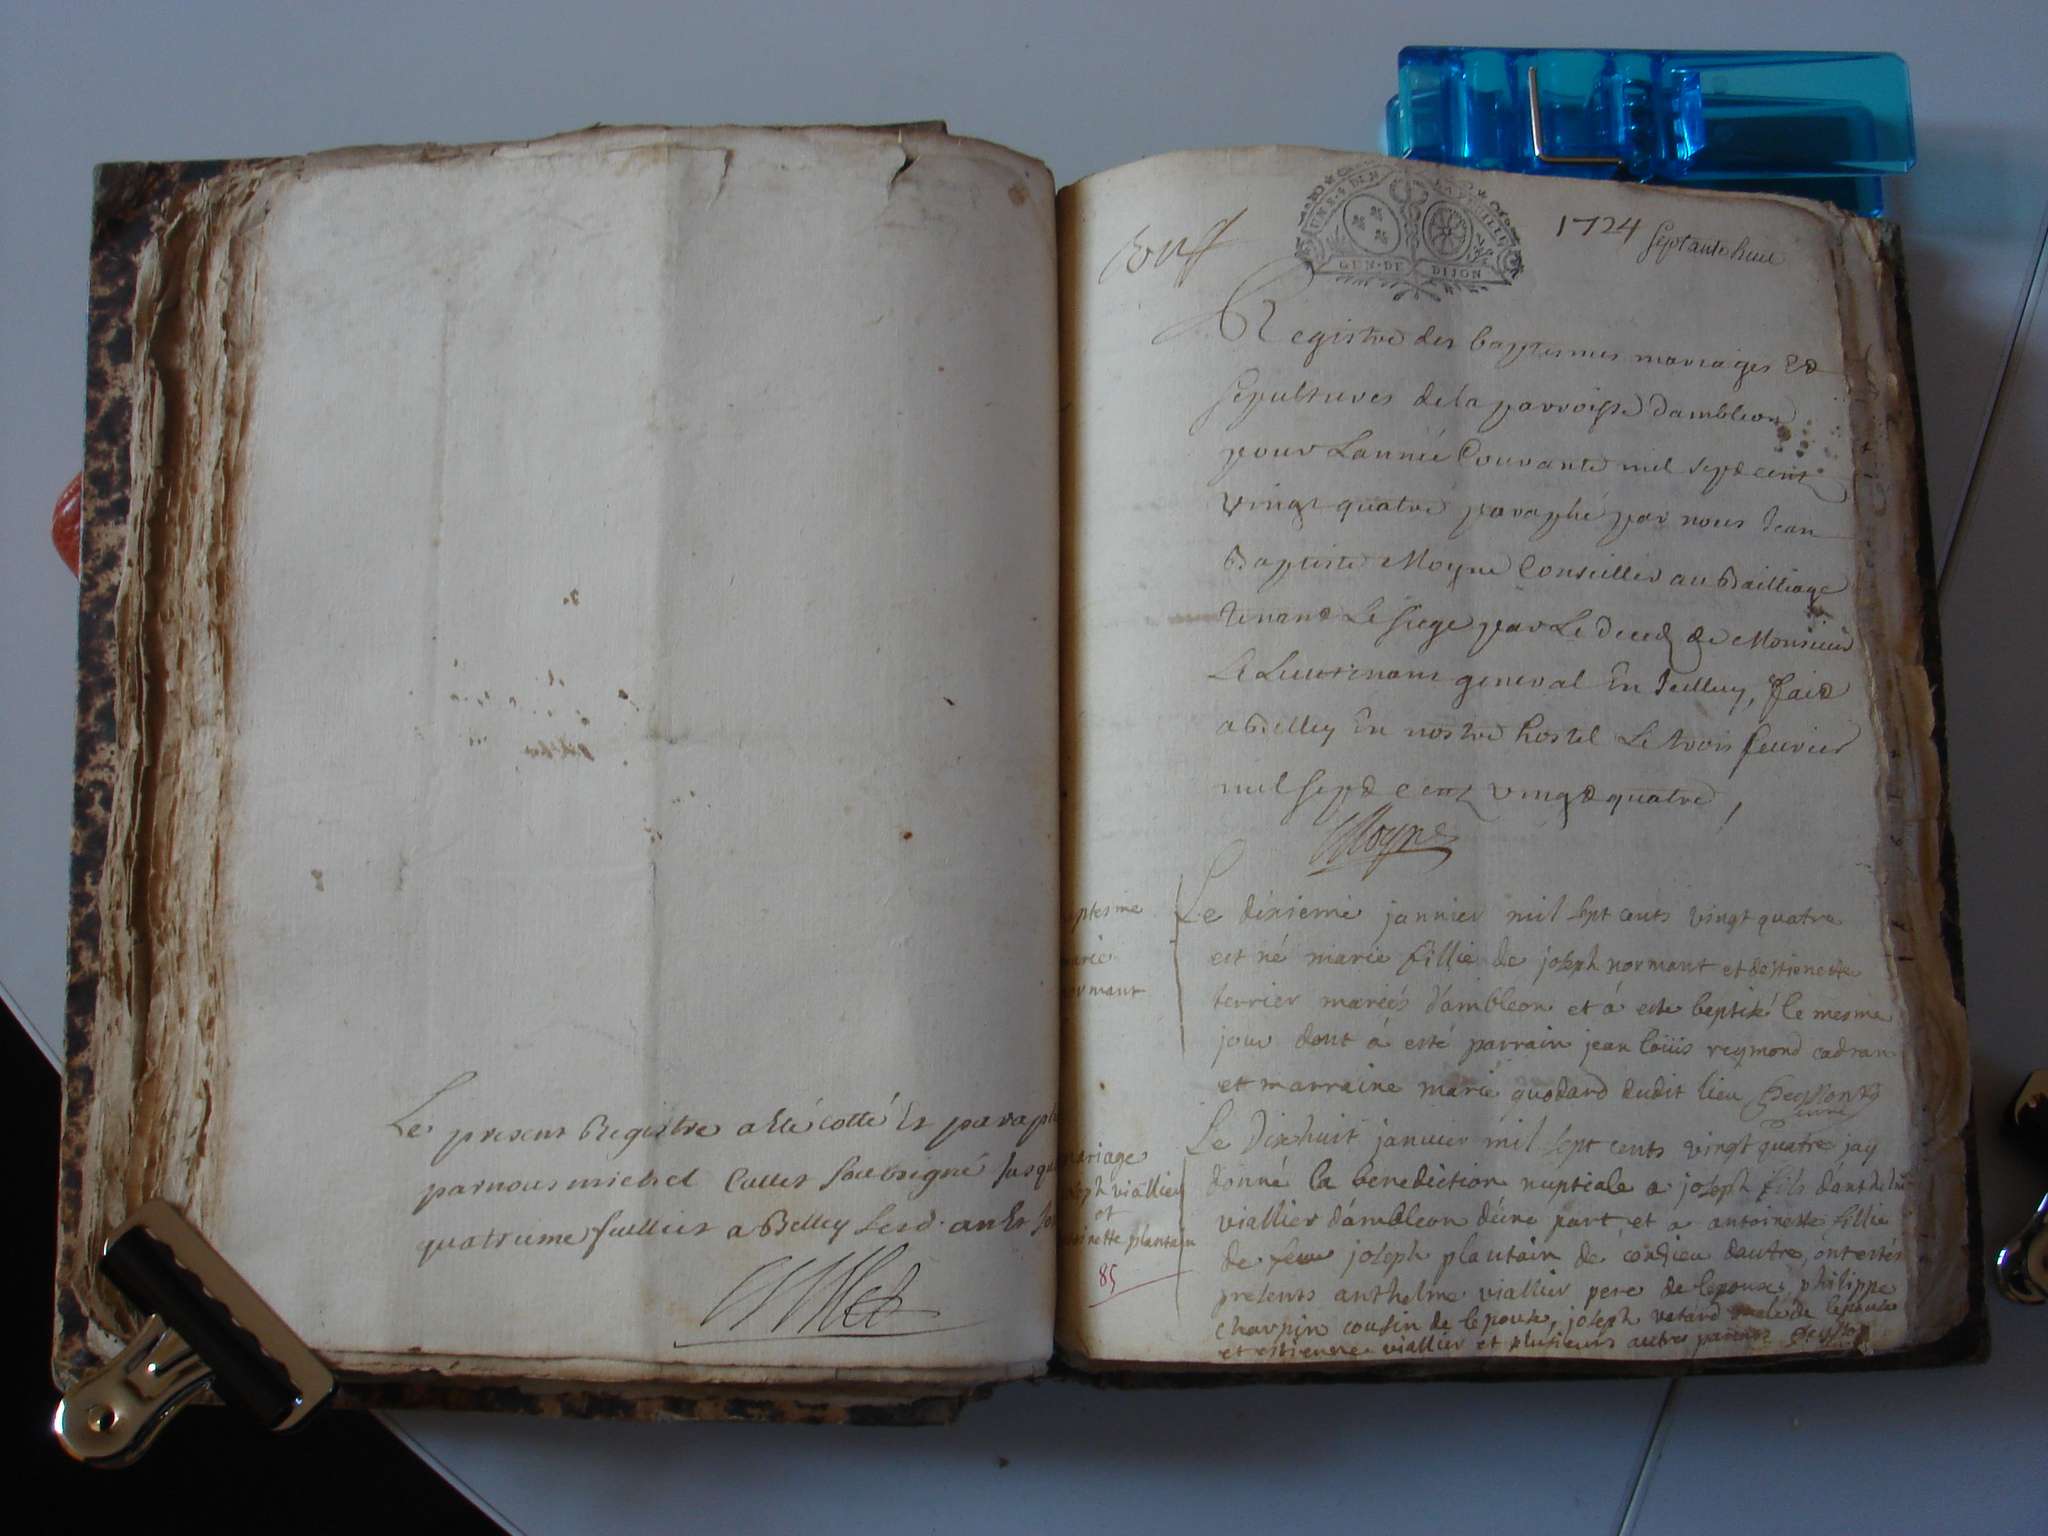 Le present Registre a été cotté Et paraph
par nous michel Cullet soubsigné jusqu
quatrieme feulliet a Belley Lesd. an Et jo
1724 septante huit
GEN·DE DIJON
Registre des baptesmes mariages Et
sepultures de la parroisse dambleon
pour Lannée Courante mil sept cent
vingt quatre paraphé par nous Jean
Baptiste Moyne Conseiller au Bailliage
tenant Le siege par Le deced de Monsieur
Le Lieutenant general En Bailliage, fait
a Belley En nostre hostel Le trois fevrier
mil sept cent vingt quatre,
Moyne
ptesme
marie
normant
Le dixieme janvier mil sept cents vingt quatre
est né marie fillie de joseph normant et destienette
terrier mariés dámbleon et á este beptisé le mesme
jour dont á esté parrain jean loüis reymond cadran
et marraine marie godard dudit lieu
mariage
joseph viallier
et
antoinette plantain
85
Le Dixhuit janvier mil sept cents vingt quatre jay
donné la benediction nuptiale a joseph fils dánthelme
viallier dámbleon dúne part et a antoinette fillie
de feu joseph plantain de cordieu dautre, ont estés
presents anthelme viallier pere de lepoux, philippe
charpin cousin de lepoux, joseph de lepouse
et estienne viallier et plusieurs autres parents